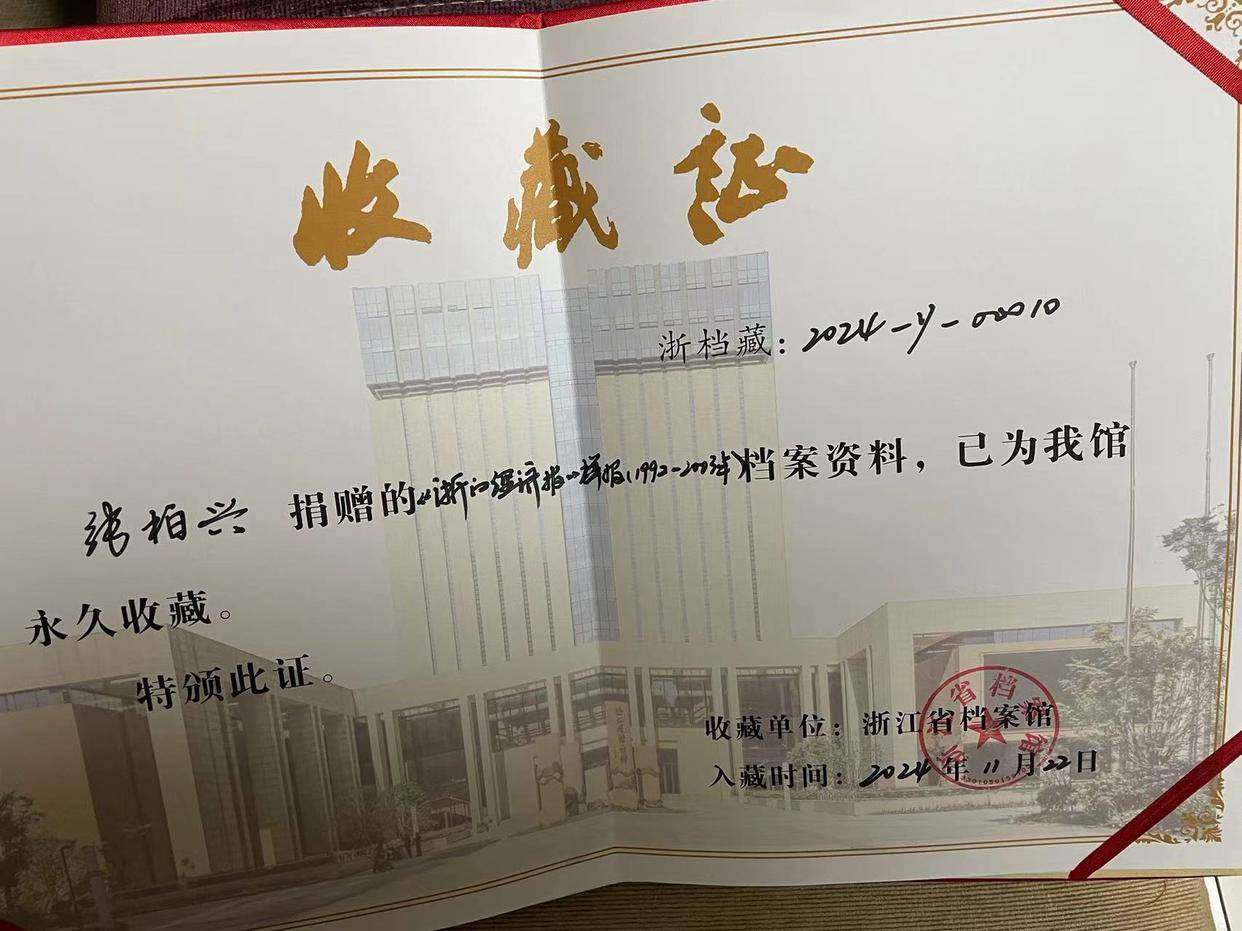 收藏证
浙档藏：2024-y-00010
张柏兴 捐赠的《浙江经济报》样报(1992-2003年)档案资料，已为我馆
永久收藏。
特颁此证。
收藏单位：浙江省档案馆
入藏时间：2024年11月22日
浙江省档案馆